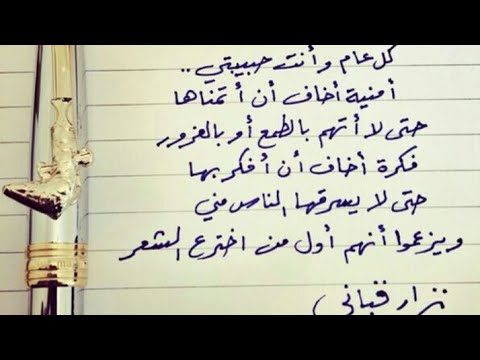 كل عام وأنت حبيبتي ..
أمنية أخاف أن أتمناها
حتى لا أتهم بالطمع أو بالغرور
فكرة أخاف أن أفكر بها
حتى لا يسرقها الناس مني
ويزعموا أنهم أول من اخترع الشعر
نزار قباني